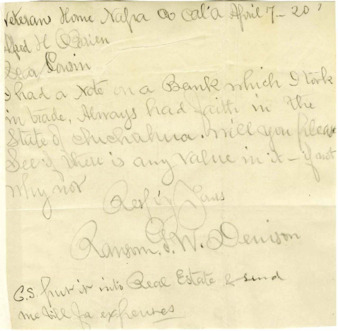 Veterans Home Napa Co Cal'a April 7 - 20'
Alfred H OBrien
Dear Cousin
I had a Note on a Bank which I took
in trade, Always had faith in the
State of Chichahua, will you please
See if there is any value in it - if not
why not
Resf'y Yours
Ransom. G. W. Denison
P.S put it into Real Estate & send
me bill for expenses